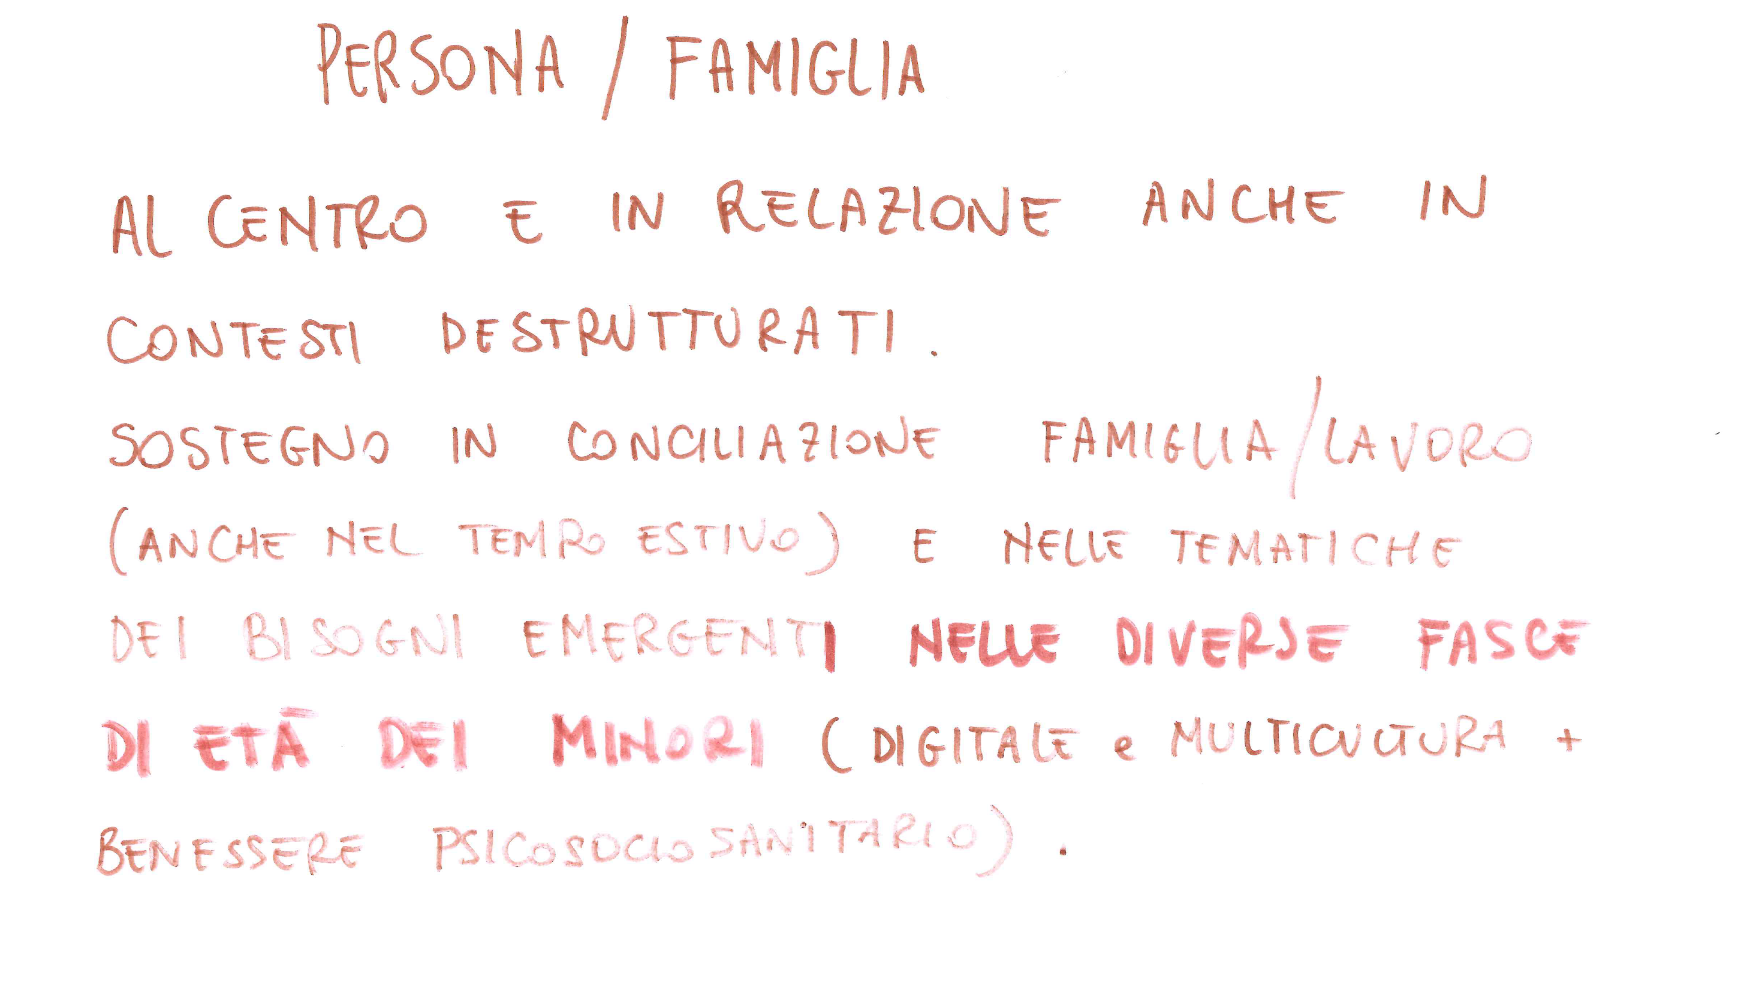 PERSONA / FAMIGLIA
AL CENTRO E IN RELAZIONE ANCHE IN
CONTESTI DESTRUTTURATI.
SOSTEGNO IN CONCILIAZIONE FAMIGLIA/LAVORO
(ANCHE NEL TEMPO ESTIVO) E NELLE TEMATICHE
DEI BISOGNI EMERGENTI NELLE DIVERSE FASCE
DI ETÀ DEI MINORI (DIGITALE e MULTICULTURA +
BENESSERE PSICOSOCIOSANITARIO).